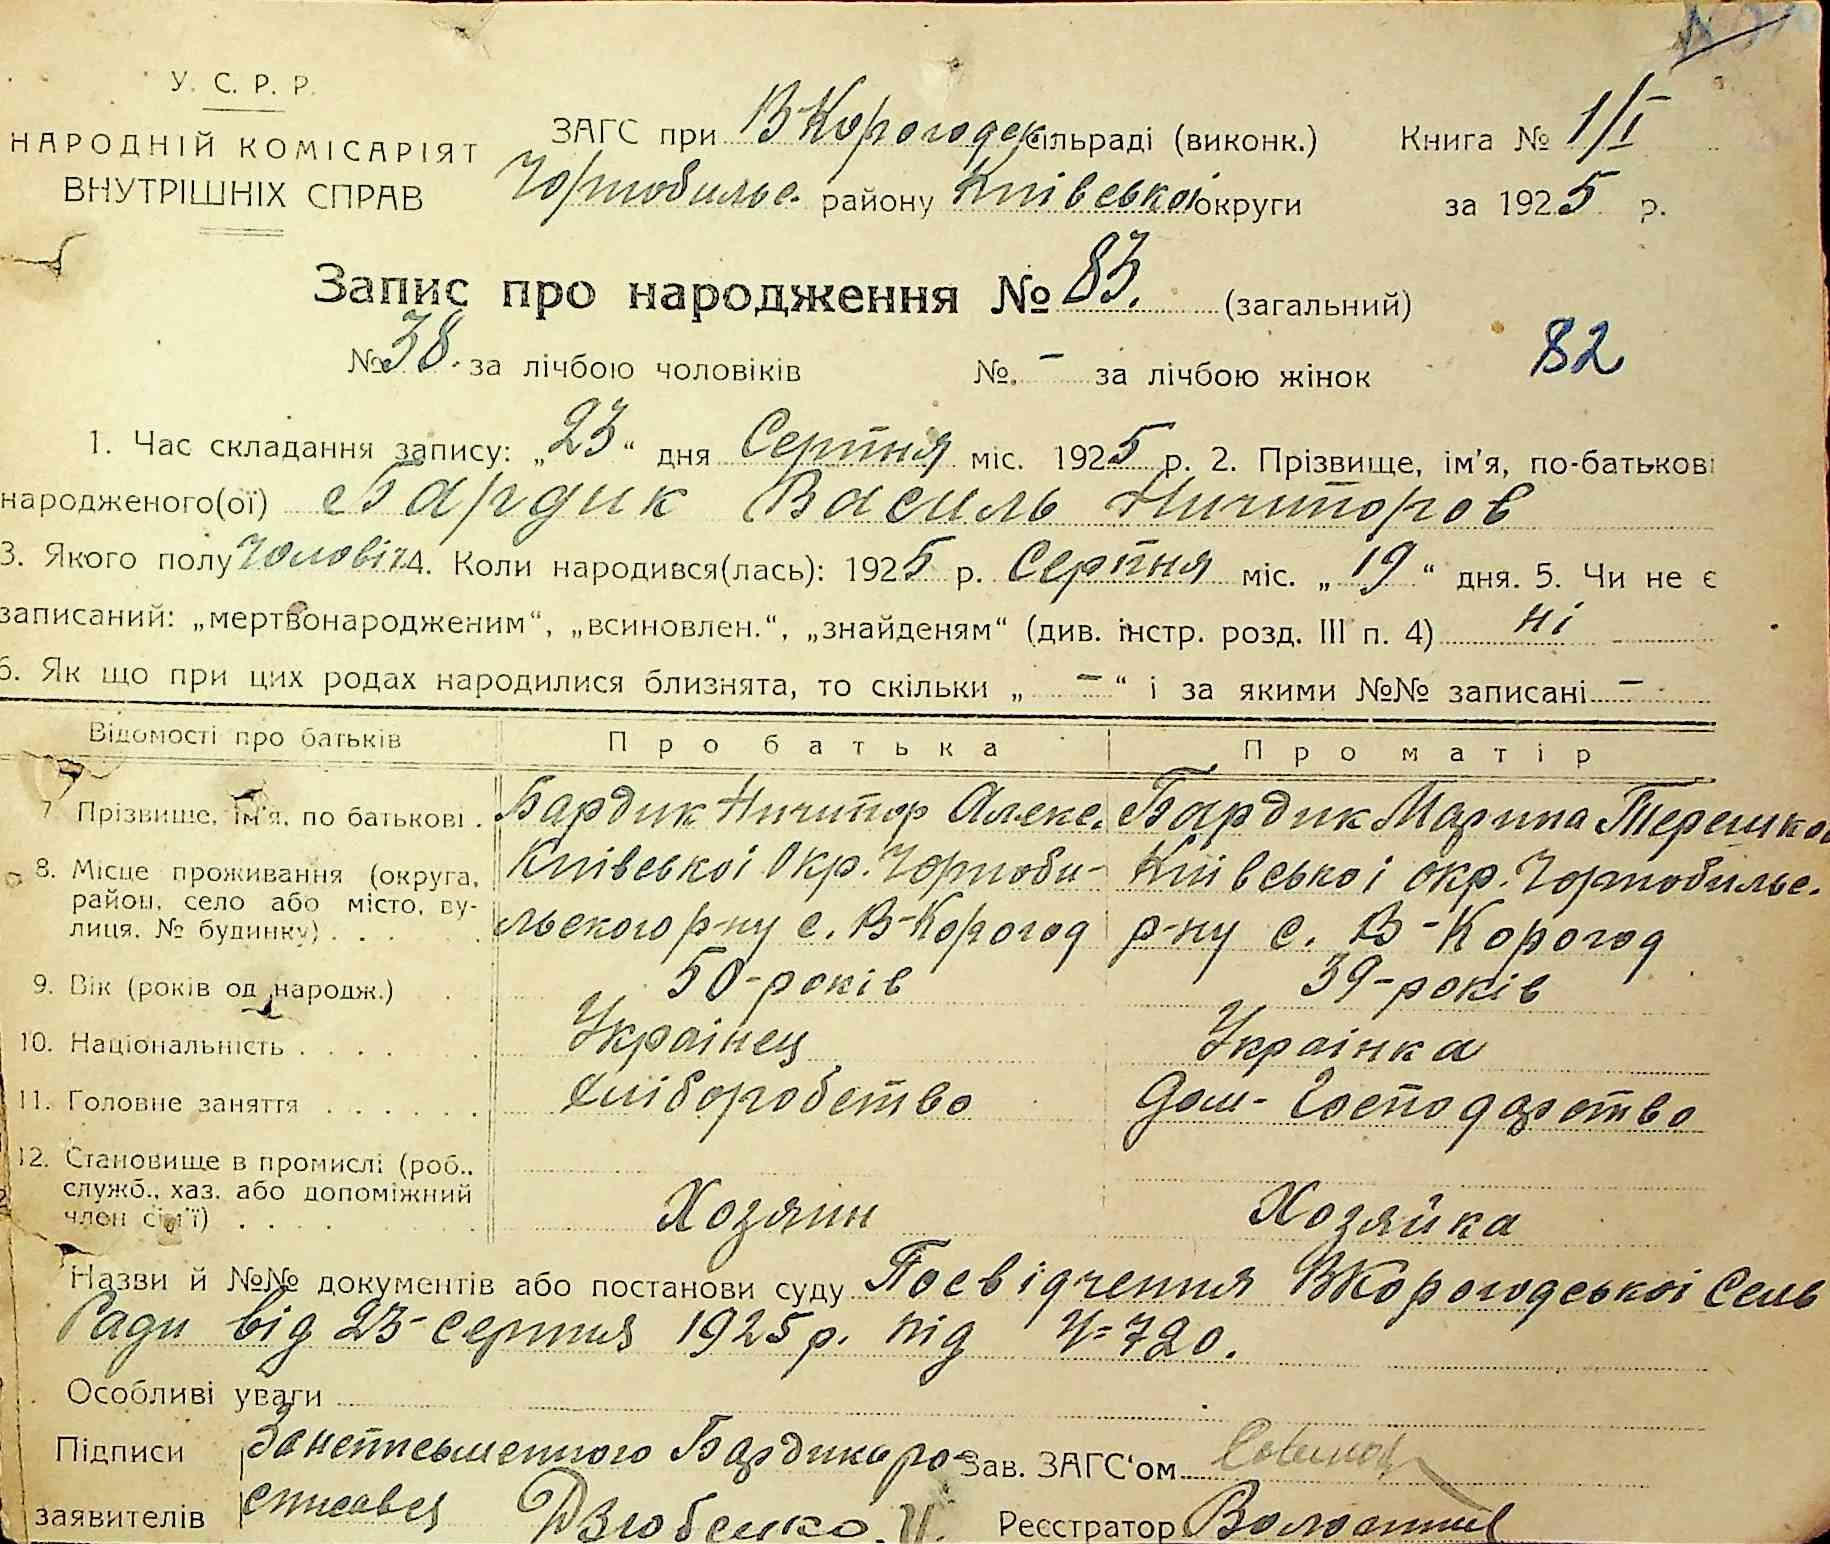 У. С. Р. Р.
НАРОДНІЙ КОМІСАРІЯТ
ВНУТРІШНІХ СПРАВ
ЗАГС при В-Корогодск сільраді (виконк.) Книга № 1/I
Чорнобильс. району Київської округи за 1925 р.
Запис про народження № 83. (загальний)
№ 38. за лічбою чоловіків №. – за лічбою жінок 82
1. Час складання запису: „23“ дня Серпня міс. 1925 р. 2. Прізвище, ім'я, по-батькові
народженого(ої) Бардик Василь Ничипоров
3. Якого полу Чоловіч 4. Коли народився(лась): 1925 р. Серпня міс. „19“ дня. 5. Чи не є
записаний: „мертвонародженим“, „всиновлен.“, „знайденям“ (див. інстр. розд. III п. 4) ні
6. Як що при цих родах народилися близнята, то скільки „ – “ і за якими №№ записані –
Відомості про батьків Про батька Про матір
7. Прізвище, ім'я, по батькові . Бардик Ничипор Алекс. Бардик Марина Терешков
8. Місце проживання (округа, Київської Окр. Чорноби- Київської окр. Чорнобильс.
район, село або місто, ву-
лиця, № будинку) . . . льского р-ну с. В-Корогод р-ну с. В-Корогод
9. Вік (років од народж.) . 50-років 39-років
10. Національність . . . . Українец Українка
11. Головне заняття . . . . . . хліборобство Дом-Господарство
12. Становище в промислі (роб.,
служб., хаз. або допоміжний
член сім'ї) . . . . Хозяин Хозяйка
Назви й №№ документів або постанови суду Посвідчення ВКорогодської Сель
Ради від 23-серпня 1925 р. під Ч=720.
Особливі уваги
Підписи За неписьменного Бардика ро- Зав. ЗАГС'ом
заявителів списався Дзюбенко. И. Реєстратор